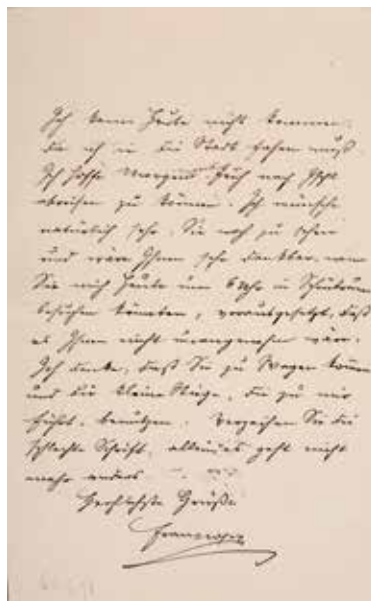 Ich kann heute nicht kommen,
da ich in die Stadt fahren muß.
Ich hoffe Morgens früh nach Ischl
abreisen zu können. Ich wünsche
natürlich sehr, Sie noch zu sehen
und wäre Ihnen sehr dankbar, wenn
Sie mich heute um 6 Uhr in Schönbrunn
besuchen könnten, vorausgesetzt, daß
es Ihnen nicht unangenehm wäre.
Ich denke, daß Sie zu Wagen kommen
und die kleine Stiege, die zu mir
führt, benützen. Verzeihen Sie die
schlechte Schrift, allein es geht nicht
mehr anders
Herzlichste Grüße
Franz Joseph